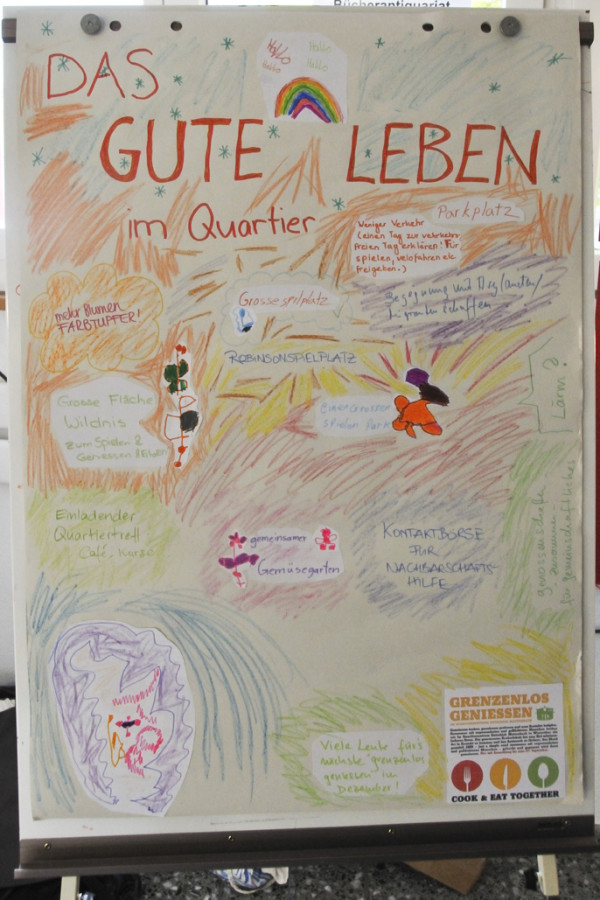 Bücherantiquariat
Hallo
Hallo
Hallo
Hallo
DAS
GUTE LEBEN
im Quartier
Parkplatz
Weniger Verkehr
(einen Tag zur verkehrs
freien Tag erklären! Für
spielen, velofahren etc
freigeben.)
mehr Blumen
FARBTUPFER!
Grossespilplatz
Begegnung mit
schaffen
ROBINSONSPIELPLATZ
Grosse Fläche
Wildnis
zum Spielen &
Geniessen
spielen Park
Lärm?
Einladender
Quartiertreff
Café, Kurse
gemeinsamer
Gemüsegarten
KONTAKTBÖRSE
FÜR
NACHBARSCHAFTS-
HILFE
zusammen
für gemeinschaftliches
Viele Leute fürs
nächste "grenzenlos
geniessen" im
Dezember!
GRENZENLOS
GENIESSEN
COOK & EAT TOGETHER